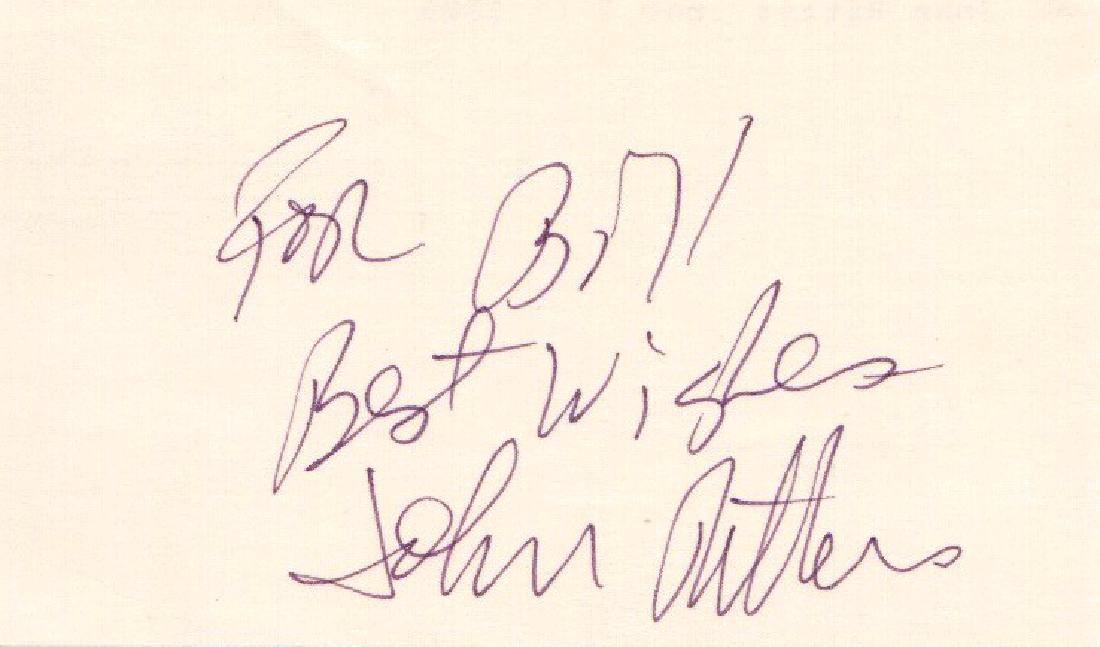 For Bill
Best Wishes
John Ritter